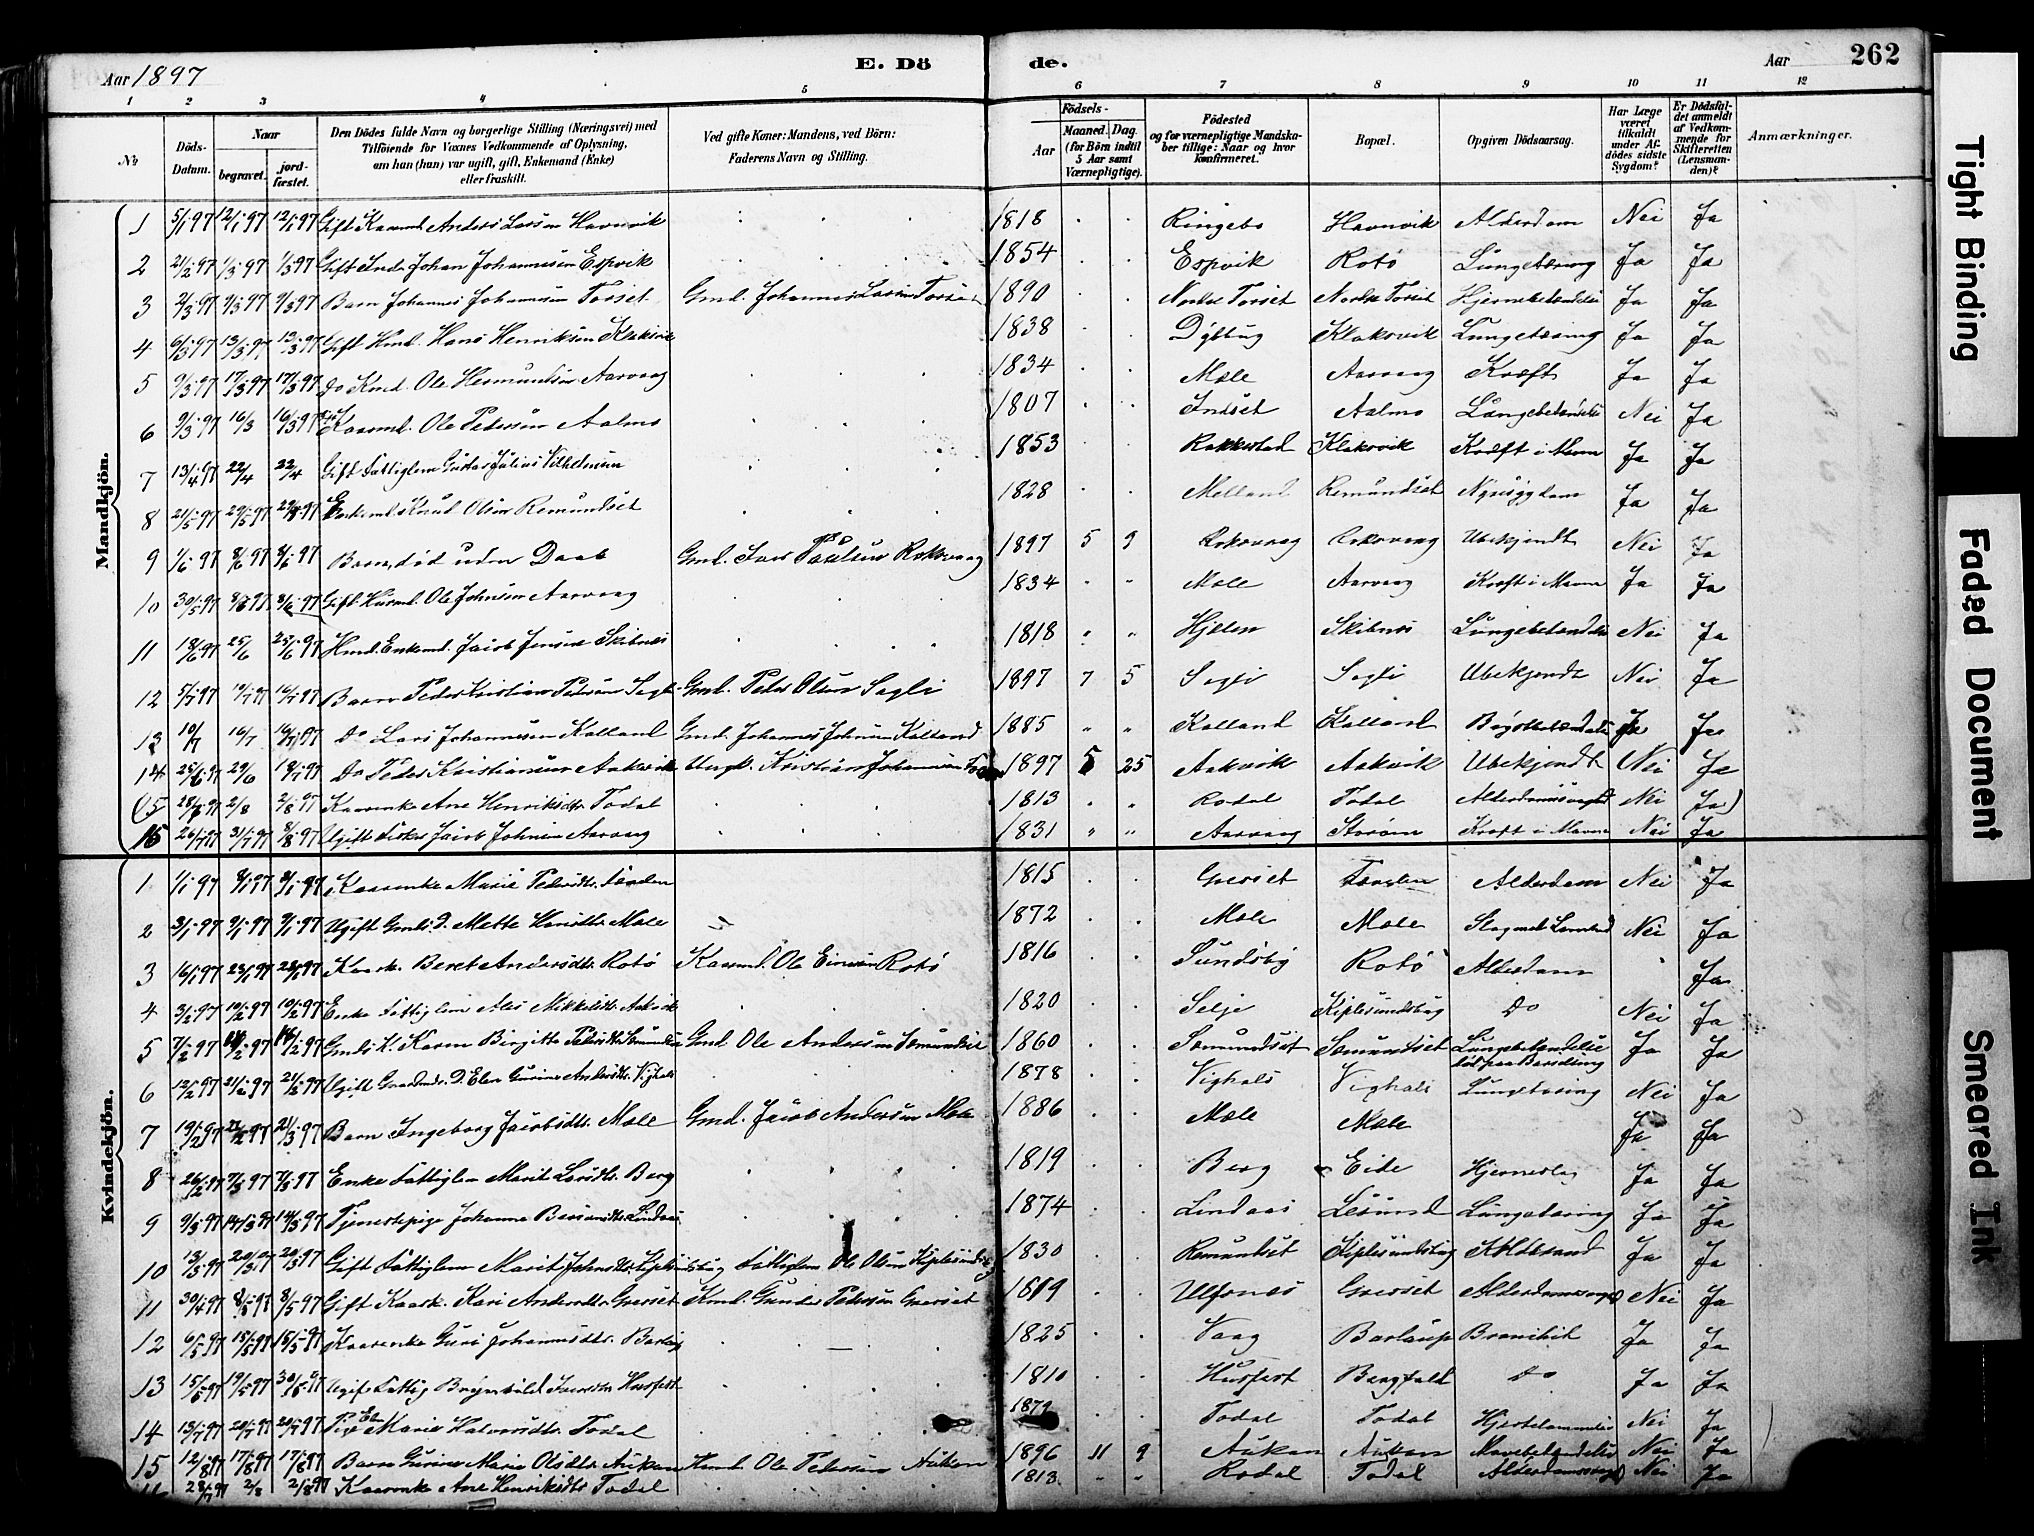 Aar 1897 E. Dö
de. Aar 262
1 2 3 4 5
6 7 8 9 10 11 12
No
Döds-Datum.
Naar
begravet.
jord-fæstet.
Den Dödes fulde Navn og borgerlige Stilling (Næringsvei) med
Tilföiende for Voxnes Vedkommende af Oplysning,
om han (hun) var ugift, gift, Enkemand (Enke)
eller fraskilt.
Ved gifte Koner: Mandens, ved Börn:
Faderens Navn og Stilling.
Födsels-
Aar
Maaned. Dag.
(for Börn indtil
5 Aar samt
Værnepligtige).
Födested
og for værnepligtige Mandska-
ber tillige: Naar og hvor
konfirmeret.
Bopæl.
Opgiven Dödsaarsag.
Har Læge
været
tilkaldt
under Af-
dödes sidste
Sygdom?
Er Dödsfal-
det anmeldt
af Vedkom-
mende for
Skifteretten
(Lensman-
den)?
Anmærkninger.
Mandkjön.
1 5/1 97 12/1 97 12/1 97 Gift Kaarmd. Anders Larsen Havnvik 1818 Ringebo Havnvik Alderdom Nei Ja
2 21/2 97 1/3 97 1/3 97 Gift Inds. Johan Johannesen Espvik 1854 Espvik Rotø Lungetæring Ja Ja
3 2/3 97 9/3 97 9/3 97 Barn Johannes Johannesen Torset Gmd. Johannes Larsen Torset 1890 Nordre Torset Nordre Torset Hjernebetændelse Ja Ja
4 6/3 97 13/3 97 13/3 97 Gift Hmd. Hans Henriksen Klaksvik 1838 Klaksvik Lungetæring Ja Ja
5 9/3 97 17/3 97 17/3 97 do Kmd. Ole Hermundsen Aarvaag 1834 Møle Aarvaag Kræft Ja Ja
6 9/3 97 16/3 16/3 97 Kaarmd. Ole Pedersen Aalmo 1807 Indset Aalmo Lungebetændelse Nei Ja
7 13/4 97 22/4 22/4 Gift Fattiglem Gustav Julius Vilhelmsen 1853 Rakkestad Klaksvik Kræft i Maven Ja Ja
8 21/5 97 29/5 97 29/5 97 Enkemd. Knud Olsen Remundset 1828 Melland Remundset Nyresygdom Ja Ja
9 1/6 97 8/6 97 8/6 97 Barn, død uden Daab Gmd. Iver Paulsen Rokvaag 1897 5 9 Rokvaag Rokvaag Ubekjendt Nei Ja
10 30/5 97 8/6 97 8/6 97 Gift Husmd. Ole Johnsen Aarvaag 1834 Møle Aarvaag Kræft i Maven Ja Ja
11 18/6 97 25/6 25/6 97 Hmd. Enkemd. Jacob Jensen Skibnes 1818 Hjelen Skibnes Lungebetændelse Nei Ja
12 5/7 97 16/7 97 Barn Peder Kristian Petersen Sagli Gmd. Peder Olsen Sagli 1897 7 5 Sagli Sagli Ubekjendt Nei Ja
13 10/7 16/7 16/7 97 Do Lars Johannesen Kalland Gmd. Johannes Johnsen Kalland 1885 Kalland Kalland Ja Ja
14 25/6 97 29/6 18/7 97 Do Peder Kristiansen Aakvik Ungk. Kristian Johannesen 1897 5 25 Aakvik Aakvik Ubekjendt Nei Ja
(15 28/7 97 2/8 2/8 97 Kaarenke Ane Henriksdtr. Todal 1813 Rodal Todal Alderdomssvaghed Nei Ja)
15 26/7 97 31/7 97 8/8 97 Ugift Fisker Jacob Johnsen Aarvaag 1831 Aarvaag Storøen Kræft i Maven Nei Ja
Kvindekjön.
1 1/1 97 8/1 97 8/1 97 Kaarenke Marie Pedersdtr. 1815 Gresset Alderdom Nei Ja
2 3/1 97 9/1 97 9/1 97 Ugift Gmds. D. Mette Hansdtr. Møle 1872 Møle Møle Nei Ja
3 16/1 97 23/1 97 23/1 97 Kaark. Beret Andersdtr. Rotø Kaarmd. Ole Einersen Rotø 1816 Sundsby Rotø Alderdom Ja
4 3/2 97 10/2 97 10/2 97 Enke Fattiglem Mikkelsdtr. Aakvik 1820 Selje Kiplesundsbug Do Nei Ja
5 7/2 97 14/2 97 14/2 97 Gmds. K. Karen Birgitte Pedersdtr. Somundset Gmd. Ole Andersen Somundset 1860 Somundset Somundset Lungebetændelse død paa Barselseng Ja Ja
6 12/2 97 21/2 97 21/2 97 Ugift Gaardmds. D. Elen Gurine Andersdtr. Vighals 1878 Vighals Vighals Lungetæring Nei Ja
7 19/2 97 27/2 97 21/3 97 Barn Ingeborg Jacobsdtr. Møle Gmd. Jacob Andersen Møle 1886 Møle Møle Ja Ja
8 26/2 97 7/3 97 7/3 97 Enke Fattiglem Marit Larsdtr. Berg 1819 Berg Eide Ja Ja
9 9/3 97 14/3 97 14/3 97 Tjenestepige Johanna Lindaas 1874 Lindaas Lesund Lungetæring Ja Ja
10 13/3 97 20/3 97 20/3 97 Gift Fattiglem Marit Johnsdtr. Kiplesundsbug Fattiglem Ole Olsen Kiplesundsbug 1830 Remundset Kiplesundsbug Koldbrand Ja Ja
11 30/4 97 8/5 97 8/5 97 Gift Kaark. Kari Andersdtr. Gresset Kmd. Gunder Pedersen Gresset 1819 Ulfsnes Gresset Alderdomssvaghed Nei Ja
12 6/5 97 15/5 97 15/5 97 Kaarenke Guri Johannesdtr. 1825 Vaag Barlaup Bronchit Ja Ja
13 15/5 97 19/5 97 30/5 97 Ugift Fattig Brynhild Iversdtr. Husfest 1810 Husfest Bergfald Do Ja Ja
14 13/7 97 20/7 97 20/7 97 Pige Marie Halvorsdtr. Todal 1879 Todal Todal Nei Ja
15 12/8 97 17/8 97 17/8 97 Barn Gurine Marie Olsdtr. Aukan Hmd. Ole Pedersen Aukan 1896 11 9 Aukan Aukan Mavebetændelse Nei Ja
28/7 97 2/8 2/8 97 Kaarenke Ane Henriksdtr. Todal 1813 Rodal Todal Alderdomssvaghed Nei Ja
Tight Binding
Faded Document
Smeared Ink